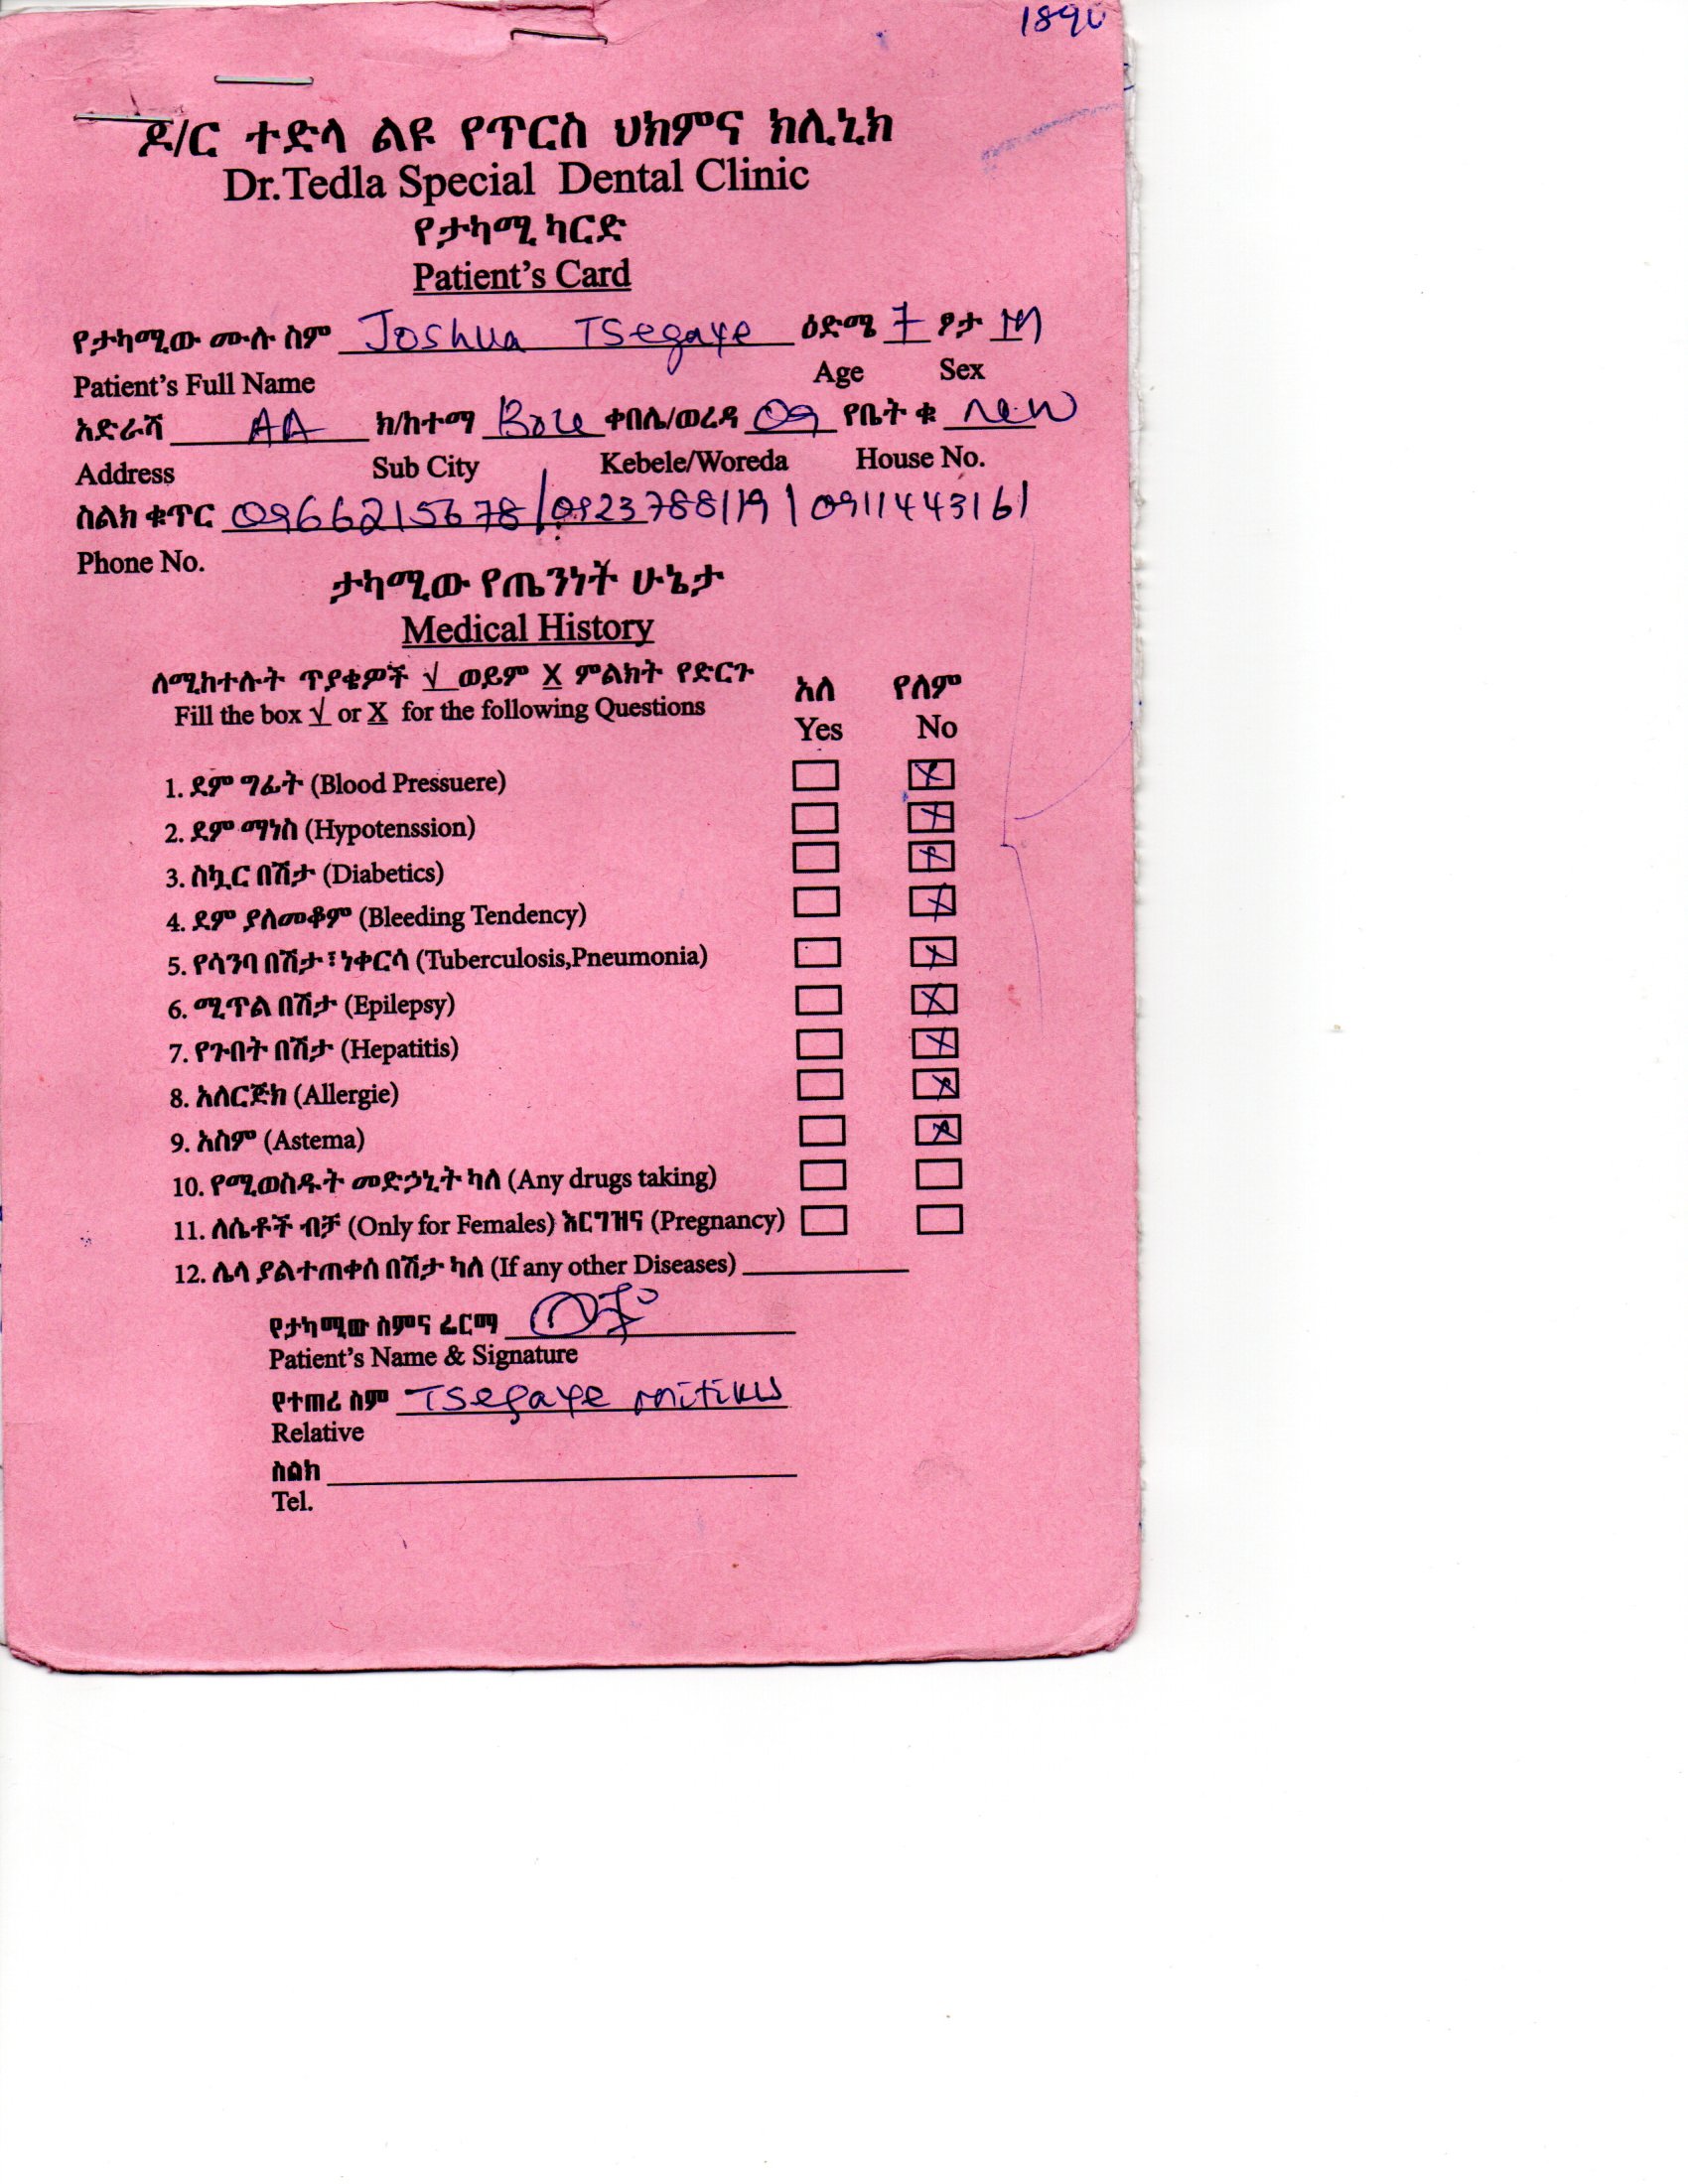 1890
ዶ/ር ተድላ ልዩ የጥርስ ህክምና ክሊኒክ
Dr.Tedla Special Dental Clinic
የታካሚ ካርድ
Patient's Card
የታካሚው ሙሉ ስም Joshua Tsegaye ዕድሜ 7 ፆታ M
Patient's Full Name Age Sex
አድራሻ AA ክ/ከተማ Bole ቀበሌ/ወረዳ 09 የቤት ቁ new
Address Sub City Kebele/Woreda House No.
ስልክ ቁጥር 0966215678 / 0923788119 / 0911443161
Phone No.
ታካሚው የጤንነት ሁኔታ
Medical History
ለሚከተሉት ጥያቄዎች √ ወይም X ምልክት የድርጉ አለ የለም
Fill the box √ or X for the following Questions Yes No
1. ደም ግፊት (Blood Pressuere) X
2. ደም ማነስ (Hypotenssion) X
3. ስኳር በሽታ (Diabetics) X
4. ደም ያለመቆም (Bleeding Tendency) X
5. የሳንባ በሽታ፣ነቀርሳ (Tuberculosis,Pneumonia) X
6. ሚጥል በሽታ (Epilepsy) X
7. የጉበት በሽታ (Hepatitis) X
8. አለርጅክ (Allergie) X
9. አስም (Astema) X
10. የሚወስዱት መድኃኒት ካለ (Any drugs taking)
11. ለሴቶች ብቻ (Only for Females) እርግዝና (Pregnancy)
12. ሌላ ያልተጠቀሰ በሽታ ካለ (If any other Diseases)
የታካሚው ስምና ፊርማ
Patient's Name & Signature
የተጠሪ ስም Tsegaye mitiku
Relative
ስልክ
Tel.